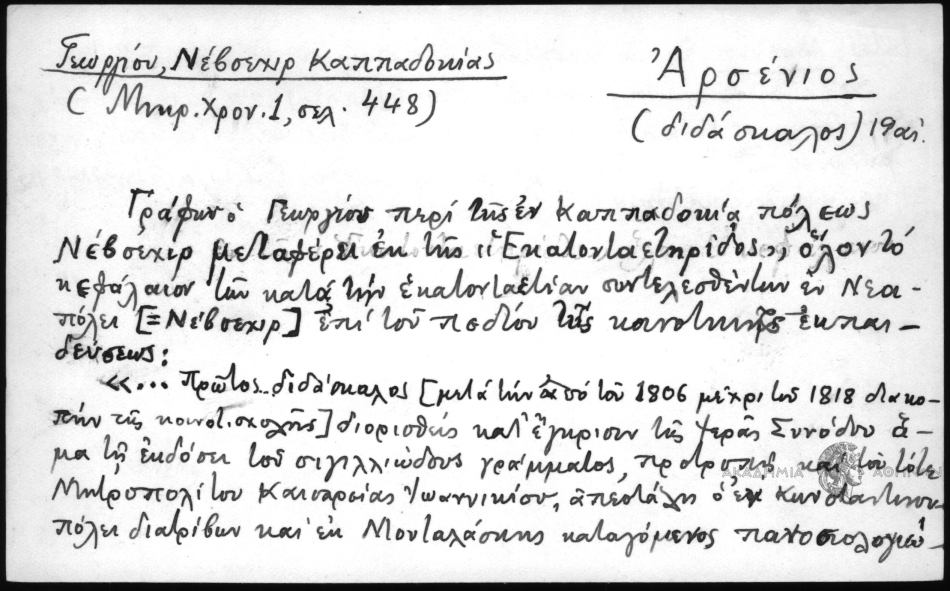 Γεωργίου, Νέβσεχιρ Καππαδοκίας
(Μικρ. Χρον. 1, σελ. 448)
Ἀρσένιος
(διδάσκαλος) 19 αἰ.
Γράφων ὁ Γεωργίου περί τῆς ἐν Καππαδοκίᾳ πόλεως
Νέβσεχιρ μεταφέρει ἐκ τῆς "Ἑκατονταετηρίδος" ὅλον τό
κεφάλαιον τῶν κατά τήν ἑκατονταετίαν συντελεσθέντων ἐν Νεα-
πόλει [=Νέβσεχιρ] ἐπί τοῦ πεδίου τῆς κοινοτικῆς ἐκπαι-
δεύσεως:
«... Πρῶτος διδάσκαλος [μετά τήν ἀπό τοῦ 1806 μέχρι τοῦ 1818 διακο-
πήν τῆς κοινοτ. σχολῆς] διορισθείς κατ' ἔγκρισιν τῆς Ἱερᾶς Συνόδου ἅ-
μα τῇ ἐκδόσει τοῦ σιγιλλιώδους γράμματος, προτροπῇ καί τοῦ τότε
Μητροπολίτου Καισαρείας Ἰωαννικίου, ἀπεστάλη ὁ ἐν Κωνσταντινου-
πόλει διατρίβων καί ἐκ Μουταλάσκης καταγόμενος πανοσιολογιώ-
ΑΚΑΔΗΜΙΑ ΑΘΗ